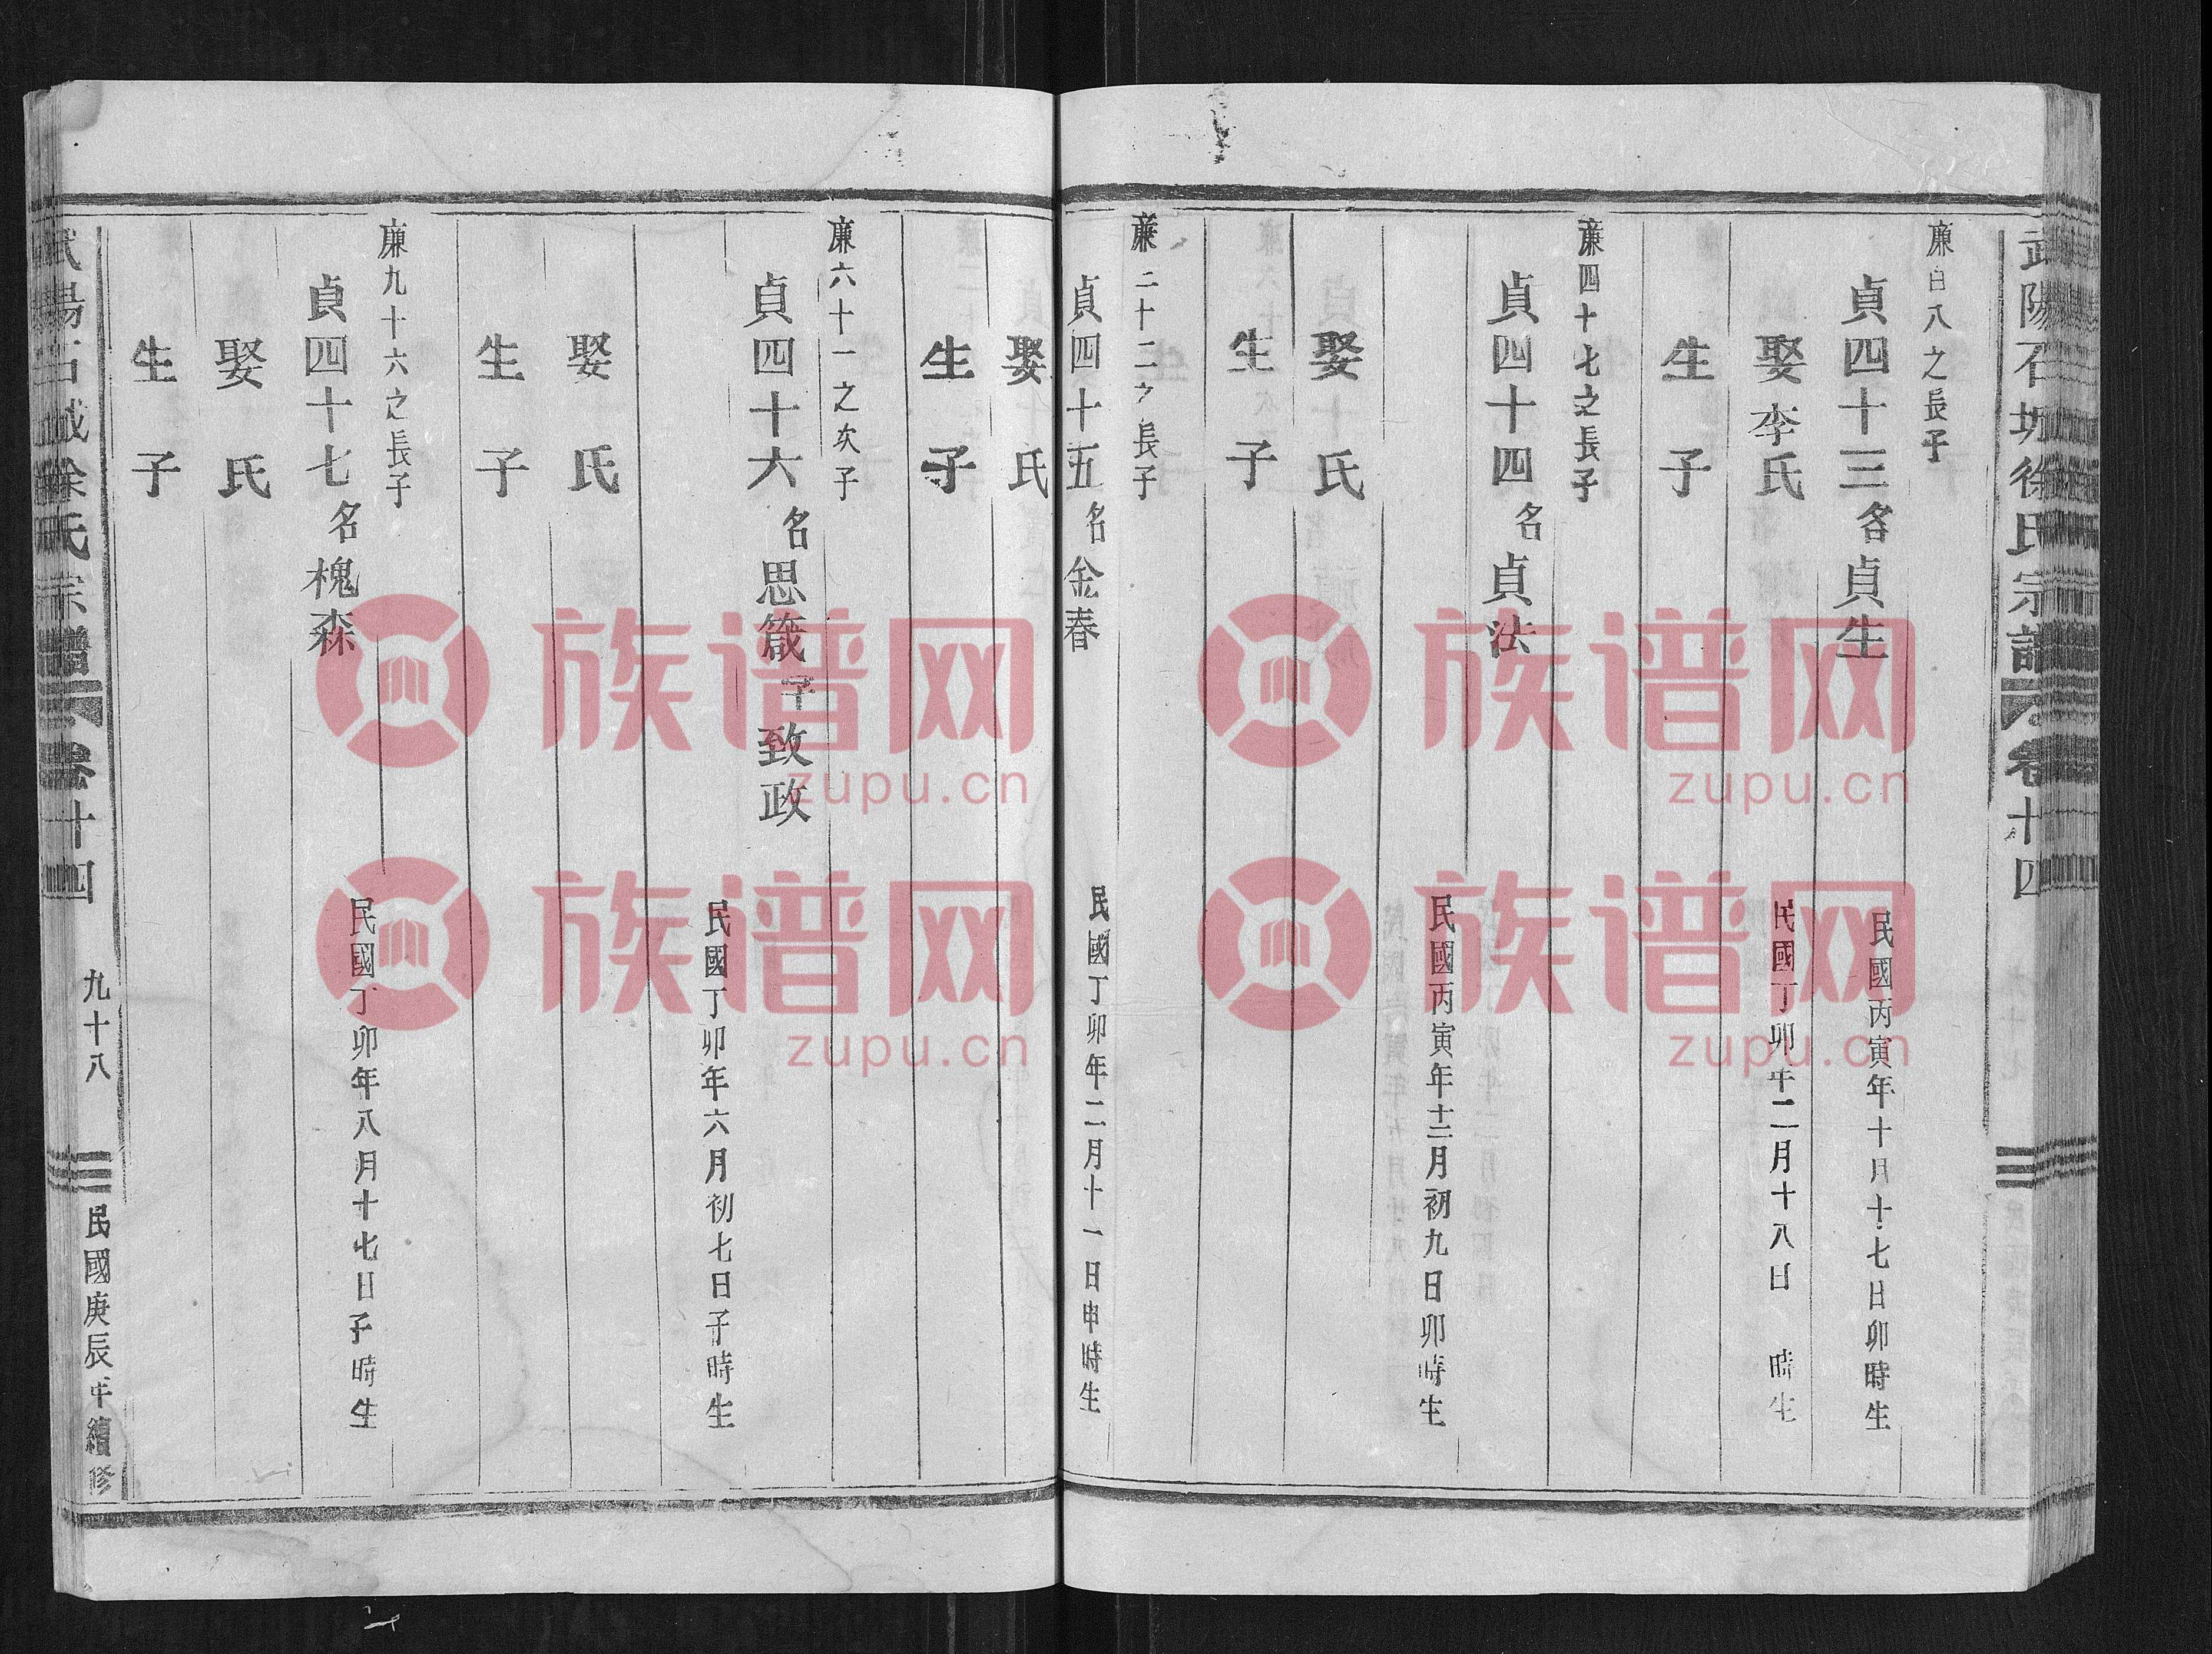 武陽石城徐氏宗譜 卷十四
廉白八之長子
貞四十三名貞生 民國丙寅年十月十七日卯時生
娶李氏 民國丁卯年二月十八日 時生
生子
廉四十七之長子
貞四十四名貞法 民國丙寅年十二月初九日卯時生
娶 氏
生子
廉二十二之長子
貞四十五名金春 民國丁卯年二月十一日申時生
娶 氏
生子
廉六十一之次子
貞四十六名思箴字致政 民國丁卯年六月初七日子時生
娶 氏
生子
廉九十六之長子
貞四十七名槐森 民國丁卯年八月十七日子時生
娶 氏
生子
武陽石城徐氏宗譜 卷十四 九十八 民國庚辰年續修
族谱网
zupu.cn
族谱网
zupu.cn
族谱网
zupu.cn
族谱网
zupu.cn